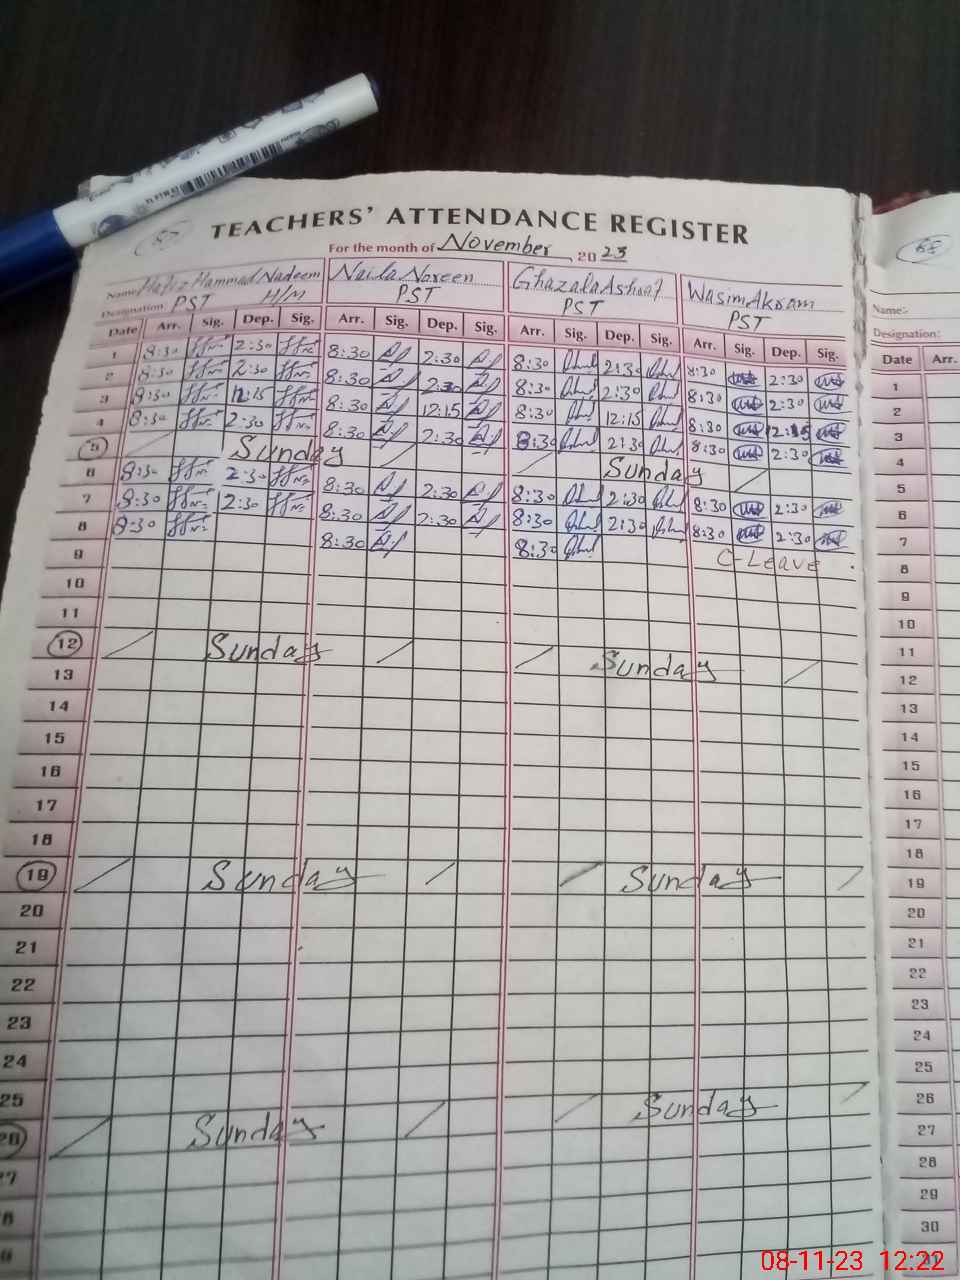 87
TEACHERS' ATTENDANCE REGISTER
For the month of November 2023
88
Name Hafiz Hammad Nadeem Naila Noreen Ghazala Ashraf Wasim Akram
Designation PST H/M PST PST PST
Name:-
Designation:
Date Arr. Sig. Dep. Sig. Arr. Sig. Dep. Sig. Arr. Sig. Dep. Sig. Arr. Sig. Dep. Sig.
Date Arr.
1 8:30 2:30 8:30 2:30 8:30 2:30 8:30 2:30
2 8:30 2:30 8:30 2:30 8:30 2:30 8:30 2:30
3 8:30 12:15 8:30 12:15 8:30 12:15 8:30 12:15
4 8:30 2:30 8:30 2:30 8:30 2:30 8:30 2:30
5 Sunday Sunday
6 8:30 2:30 8:30 2:30 8:30 2:30 8:30 2:30
7 8:30 2:30 8:30 2:30 8:30 2:30 8:30 2:30
8 8:30 8:30 8:30 C-Leave
9
10
11
12 Sunday Sunday
13
14
15
16
17
18
19 Sunday Sunday
20
21
22
23
24
25
26 Sunday Sunday
1
2
3
4
5
6
7
8
9
10
11
12
13
14
15
16
17
18
19
20
21
22
23
24
25
26
27
28
29
30
08-11-23 12:22